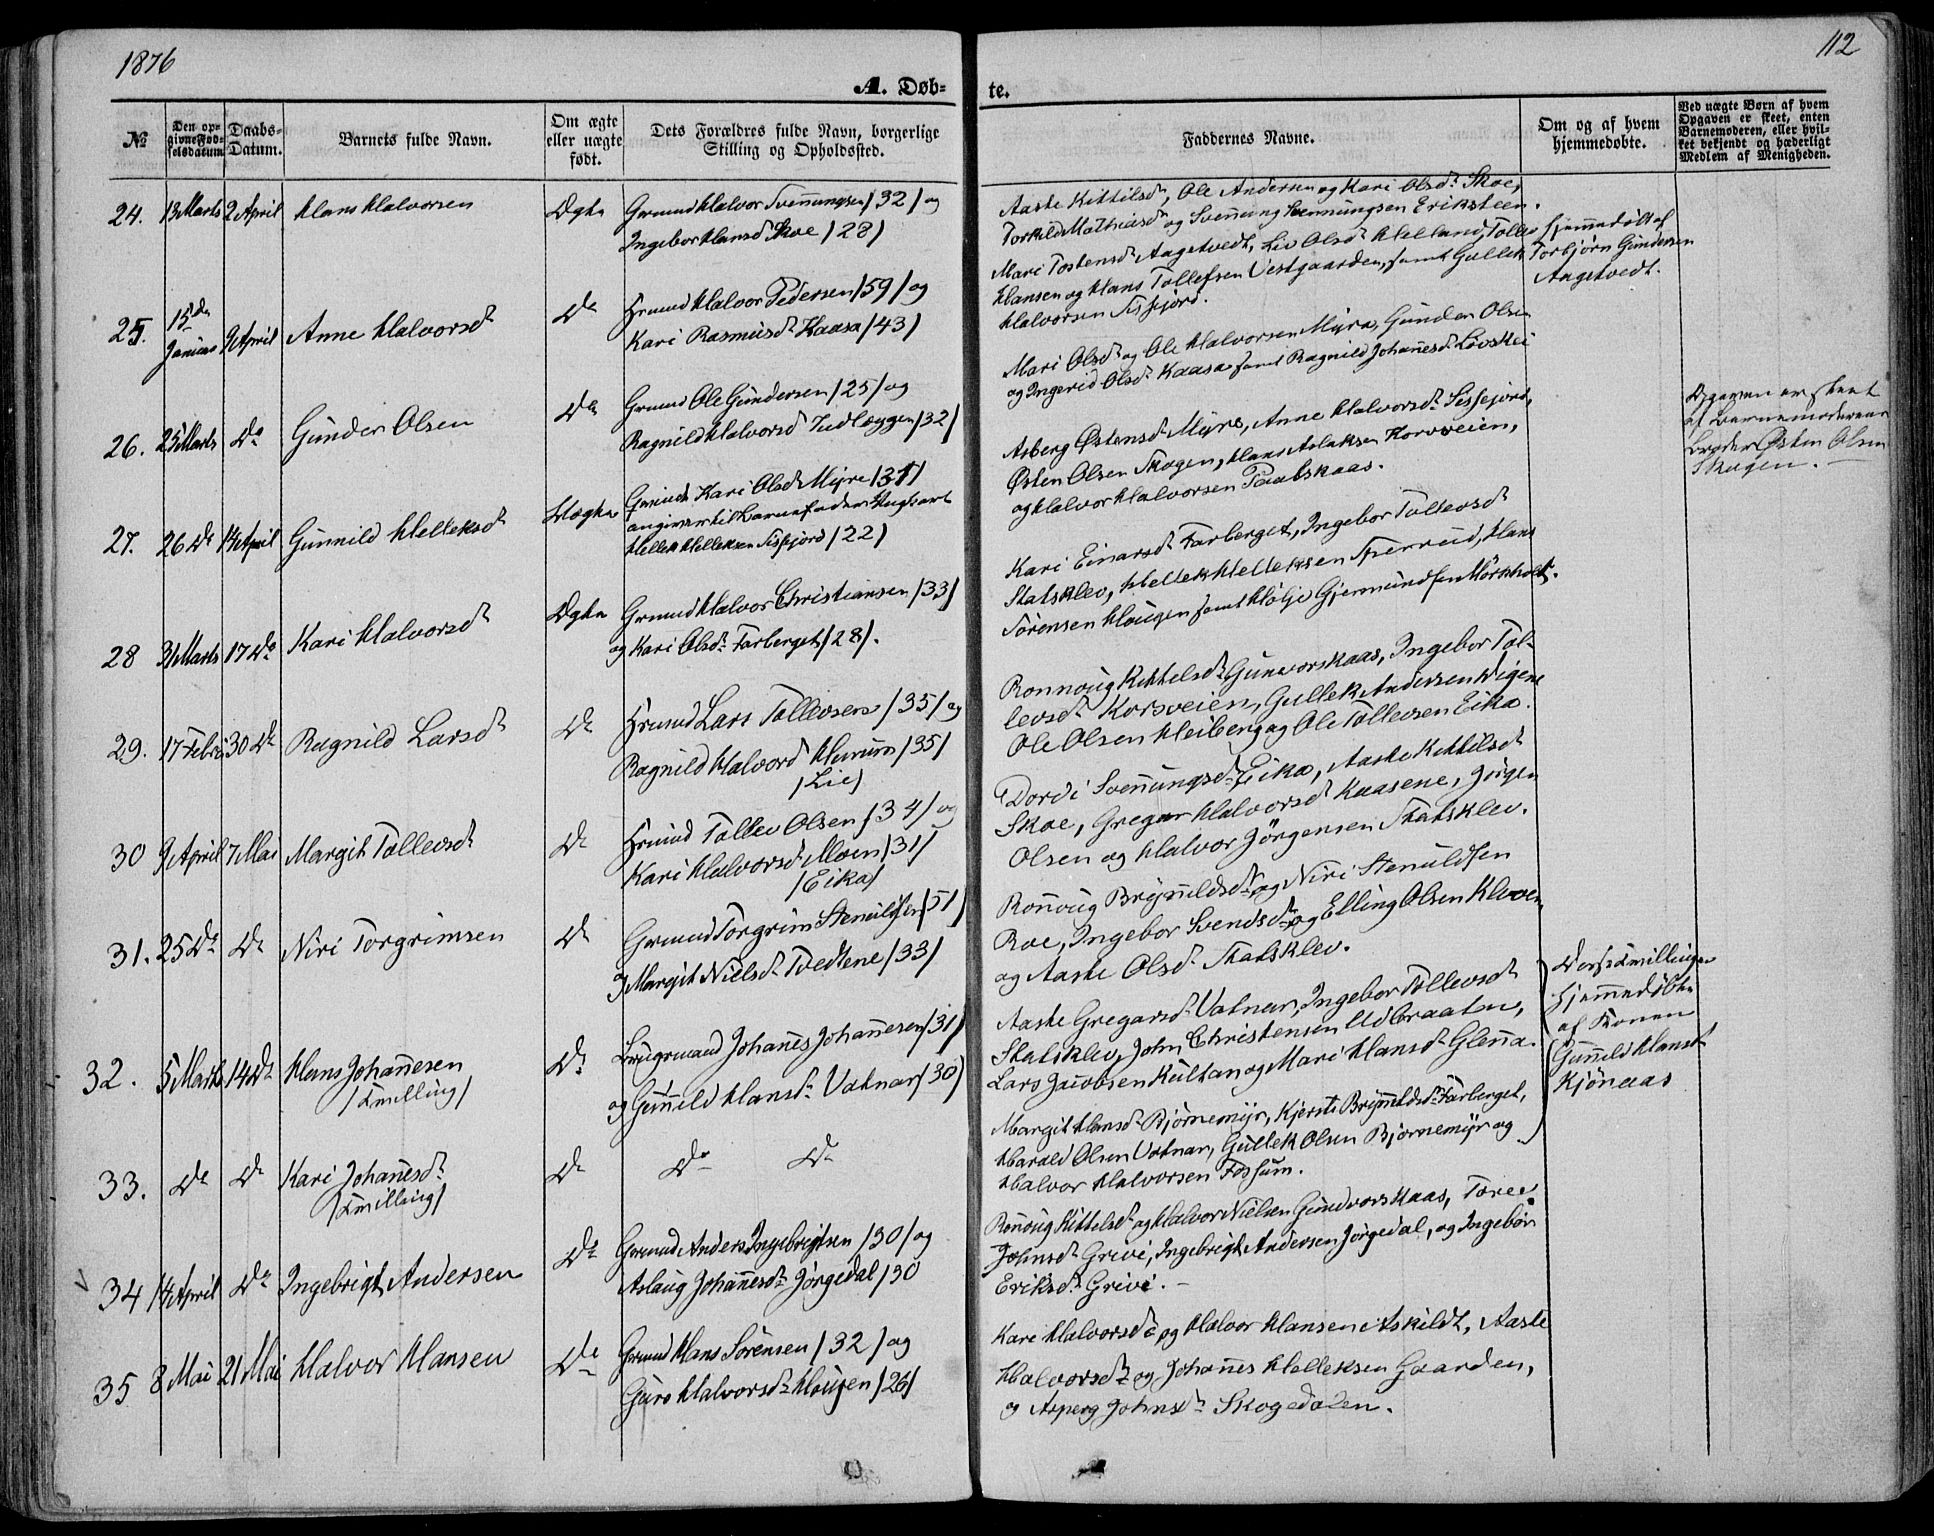 1876
112
A. Døbte.
№
Den opgivne Fødselsdatum
Daabs-Datum.
Barnets fulde Navn.
Om ægte eller uægte født.
Dets Forældres fulde Navn, borgerlige Stilling og Opholdssted.
Faddernes Navne.
Om og af hvem hjemmedøbte.
Ved uægte Børn af hvem Opgaven er skeet, enten Barnemoderen, eller hvilket bekjendt og hæderligt Medlem af Menigheden.
24. 13 Marts 2 April Hans Halvorsen Ægte
Grmnd Halvor Svennungsen /32/ og
Ingebor Hansd Skoe /28/
Aaste Kittilsd, Ole Andersen og Kari Olsd. Skoe,
Torkild Mathiasd og Svennung Svennungsen Eriksteen.
25. 15de Januar 9 April Anne Halvorsd Do
Hrmnd Halvor Pedersen /59/ og
Kari Rasmusd. Kaasa /43/
Mari Tostensd. Angstvedt, Liv Olsd. Helland, Tollev
Hansen og Hans Tollefsen Vestgaarden, samt Gullek
Halvorsen Sisjord.
Hjemmedøbt af
Torbjørn Gundersen
Angstvedt.
26. 25 Marts Do Gunder Olsen Do
Grmnd Ole Gundersen /25/ og
Ragnild Halvorsd Indlæggen /32/
Mari Olsd. og Ole Halvorsen Myra, Gunder Olsen
og Ingerid Olsd. Kaasa samt Ragnild Johannesd. Løvskei
27. 26 Do 14 April Gunnild Helleksd Uægte
Kari Olsd. Myre /31/
angiver til Barnefader Ungkarl
Hellek Helleksen Sisjord /22/
Asberg Østensd. Myre, Anne Halvorsd. Sisjord,
Østen Olsen Skogen, Hans Aslaksen Korsveien,
og Halvor Halvorsen Paalskaas.
Opgaven er skeet
af Barnemoderens
Broder Østen Olsen
Skogen.
28 31 Marts 17 Do Kari Halvorsd Ægte
Grmnd Halvor Christiansen /33/
og Kari Olsd. Farberget /28/.
Kari Einarsd. Farberget, Ingebor Tollevsd
Statsklev, Hellek Helleksen Sperrud, Hans
Sørensen Haugen samt Hølje Gjermundsen Mørkholt.
29. 17 Febr. 30 Do Ragnild Larsd Do
Hrmnd Lars Tollevsen /35/ og
Ragnild Halvord Herum /35/
/Lie/
Ronnoug Kittelsd. Gunvorskaas, Ingebor Tol-
levsd. Korsveien, Gullek Andersen Vigene
Ole Olsen Heiberg og Ole Tollevsen Eika.
30 9 April 7 Mai Margit Tollevsd Do
Hrmnd Tollev Olsen /34/ og
Kari Halvorsd. Moen /31/
/Eika/
Dordi Svennungsd. Eika, Aaste Kittilsd
Skoe, Gregar Halvorsd Kaasene, Jørgen
Olsen og Halvor Jørgensen Statsklev.
31. 25 Do Do Niri Torgrimsen Do
Grmnd Torgrim Stenulfsen /51/
og Margit Nielsd. Tvedtene /33/
Ronnoug Brynildsd. og Niri Stenulfsen
Roe, Ingebor Svendsd. og Elling Olsen Kleven
og Aaste Olsd. Statsklev.
32. 5 Marts 14 Do Hans Johannesen Do
/Tvilling/
Brugrmand Johanes Johannesen /31/
og Gunnild Hansd. Vatnar /30/
Aaste Gregarsd. Vatnar, Ingebor Tollevsd
Statsklev, John Christensen Udbraaten,
Lars Jacobsen Kultan og Mari Hansd. Glenna.
Disse Tvillinger
hjemmedøbte
af Konen
Gunnild Hansd
Kjønaas
33. Do Do Kari Johanesd. Do Do Do
/Tvilling/
Margit Hansd. Bjørnemyr, Kjersti Brynildsd. Farberget,
Harald Olsen Vatnar, Gullek Olsen Bjørnemyr og
Halvor Halvorsen Fossum.
34 14 April Do Ingebrigt Andersen Do
Grmnd Anders Ingebrigtsen /30/ og
Aslaug Johannesd. Jørgedal /30
Ronnoug Kittelsd. og Halvor Nielsen Gundvorskaas, Toree
Johnsd. Grivi, Ingebrigt Andersen Jørgedal, og Ingebor
Eriksd. Grivi.
35 8 Mai 21 Mai Halvor Hansen Do
Grmnd Hans Sørensen /32/ og
Guro Halvorsd. Haugen /26/
Kari Halvorsd. og Halvor Hansen Askildt, Aaste
Halvorsd. og Johannes Helleksen Gaarden,
og Asperg Johnsd. Skogedalen.